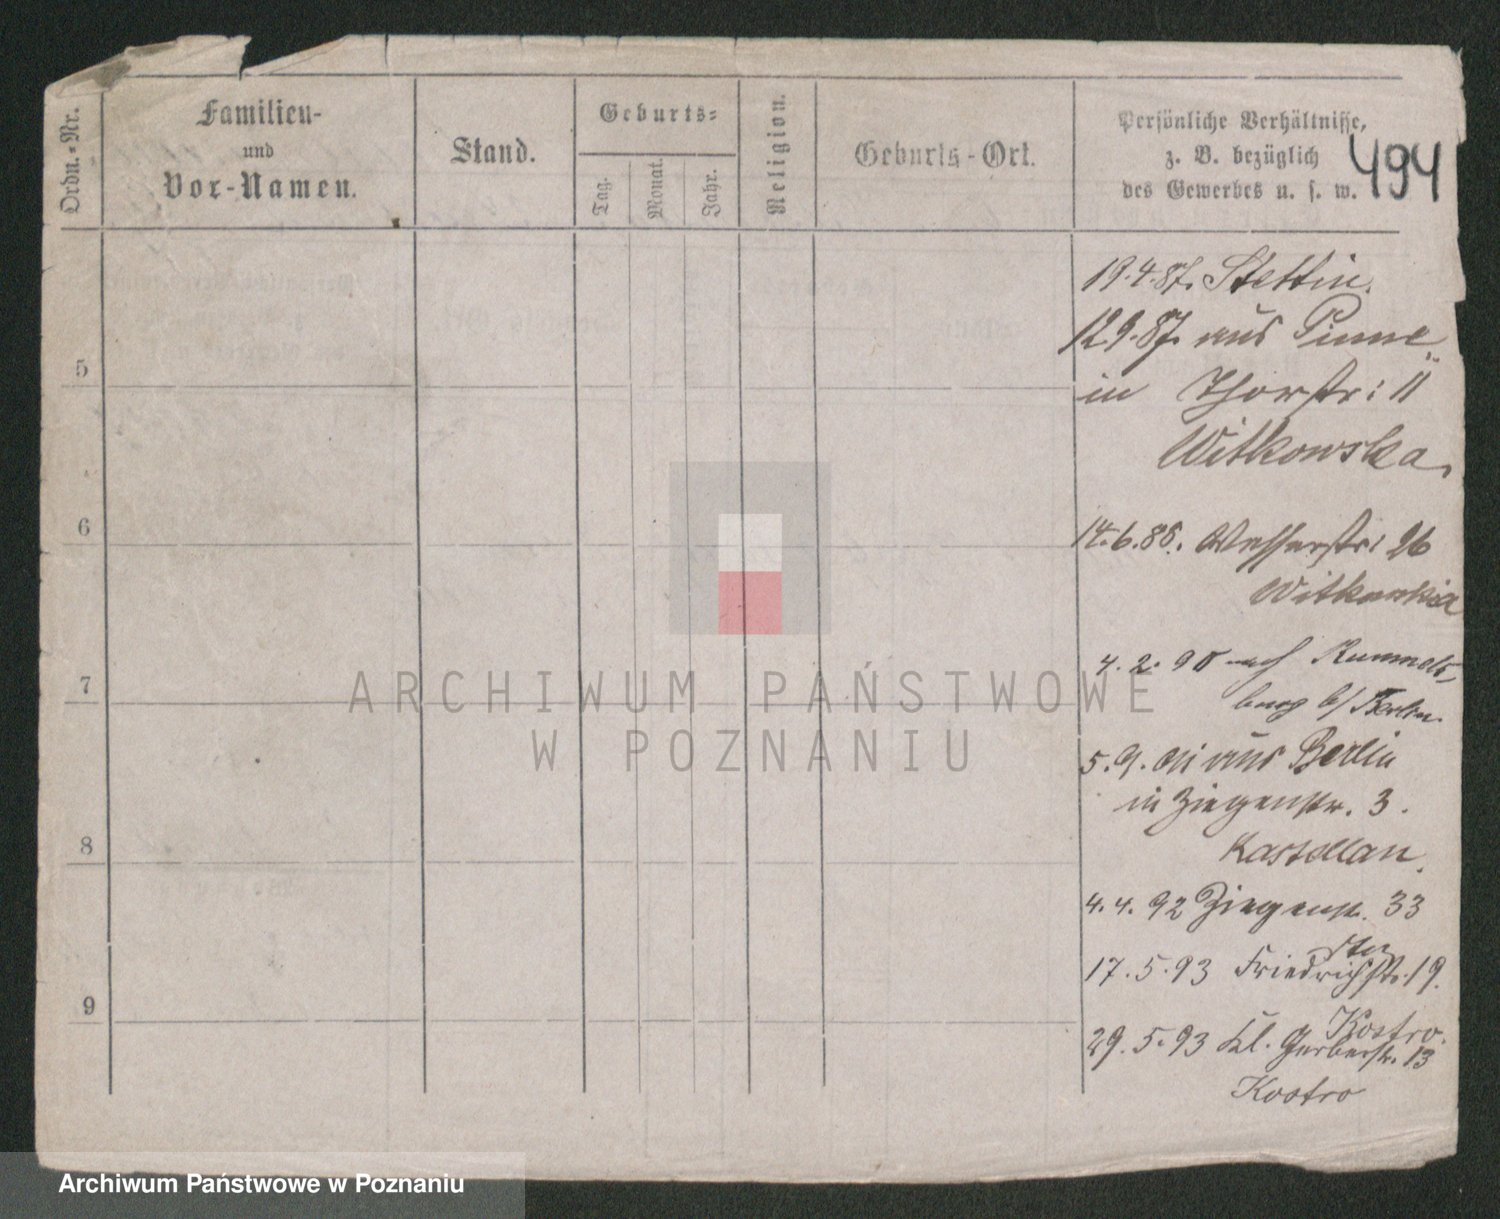 Ordn.-Nr.
Familien-
und
Vor-Namen.
Stand.
Geburts-
Tag.
Monat.
Jahr.
Religion.
Geburts-Ort.
Persönliche Verhältnisse,
z. B. bezüglich
des Gewerbes u. s. w.
494
19.4.87. Stettin.
12.9.87. aus Pinne
in Thorstr: 11
Witkowska.
14.6.88. Wasserstr: 26
Witkowska
4.2.90 nach Rummels-
burg b/ Berlin.
5.9.91 aus Berlin
in Ziegenstr. 3.
Kastellan.
4.4.92 Ziegenstr. 33
17.5.93 Friedrichstr. 19.
Kostro.
29.5.93 Kl. Gerberstr. 13
Kostro
5
6
7
8
9
ARCHIWUM PAŃSTWOWE
W POZNANIU
Archiwum Państwowe w Poznaniu